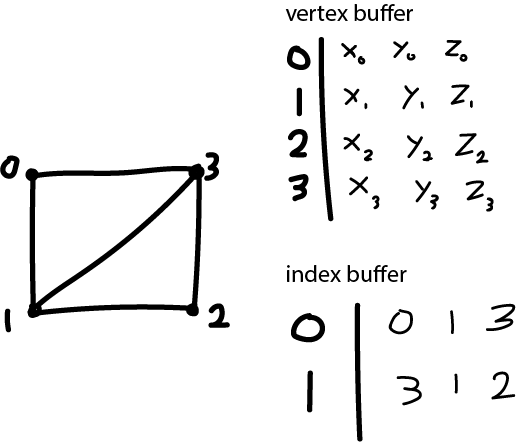 vertex buffer
0 x₀ y₀ z₀
1 x₁ y₁ z₁
2 x₂ y₂ z₂
3 x₃ y₃ z₃
0 3
1 2
index buffer
0 0 1 3
1 3 1 2